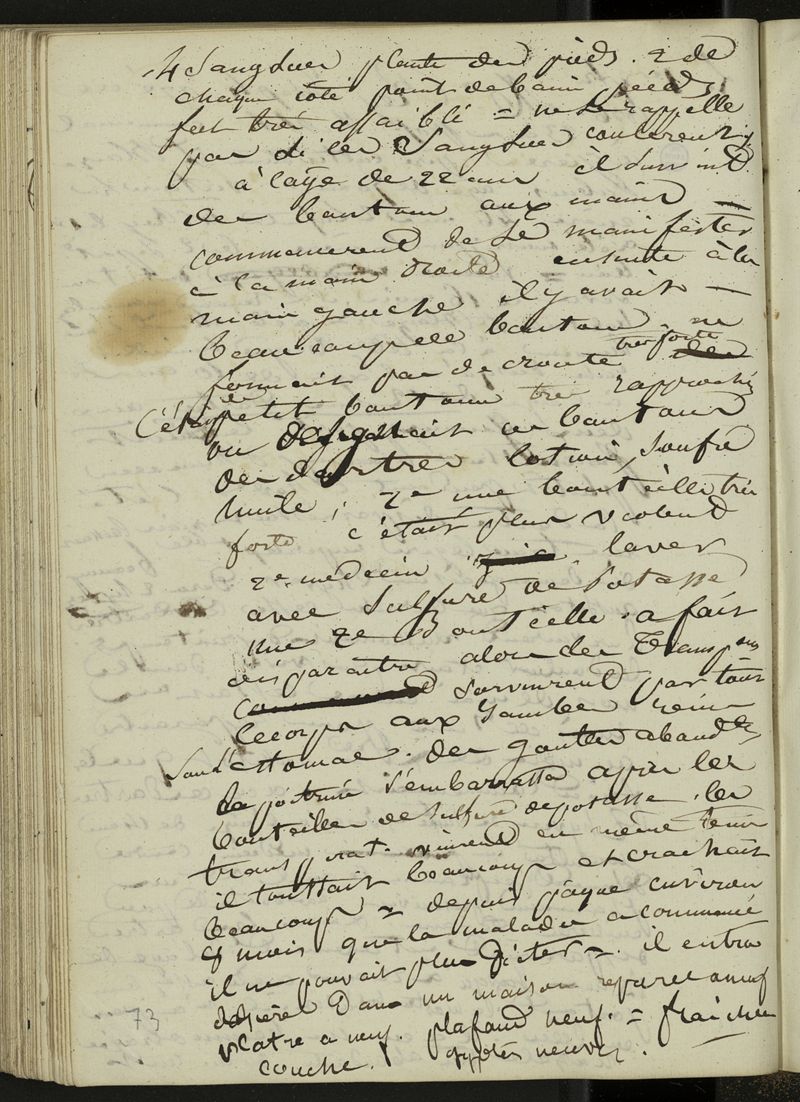 4 Sangsues plante des pieds. 2 de
chaque coté point de bain pieds
fut très affaiblé = ne se rappelle
pas si les Sangsues coulerent
à l'age de 22 ans il survint
des boutons aux mains —
commencerent de se manifester
à la main droite ensuite à la
main gauche il y avait —
beaucoup de boutons, ne
formait pas de croute très forte
C'était de petit boutons très rapprochés
on désignait ces boutons
des dartres lotion, soufre
huile, 2e une bouteille très
forte c'était plus violent
2e medecin laver
avec Sulfure de Potasse
une 2e Bouteille a fait
disparaitre alors des Transp
survinrent par tout
le corps aux Jambes reins
sur l'estomac. des gouttes abond
la poitrine s'embarrassa après les
bouteilles de Sulfure de potasse. les
transpirat. vinrent en même temps
il toussait beaucoup et crachait
beaucoup = depuis pâque environ
mois que la maladie a commencé
il ne pouvait plus Dicter =. il entra
dans un maison reparee a neuf
platre a neuf. plafond neuf. = fraiche
couche. neuves.
73